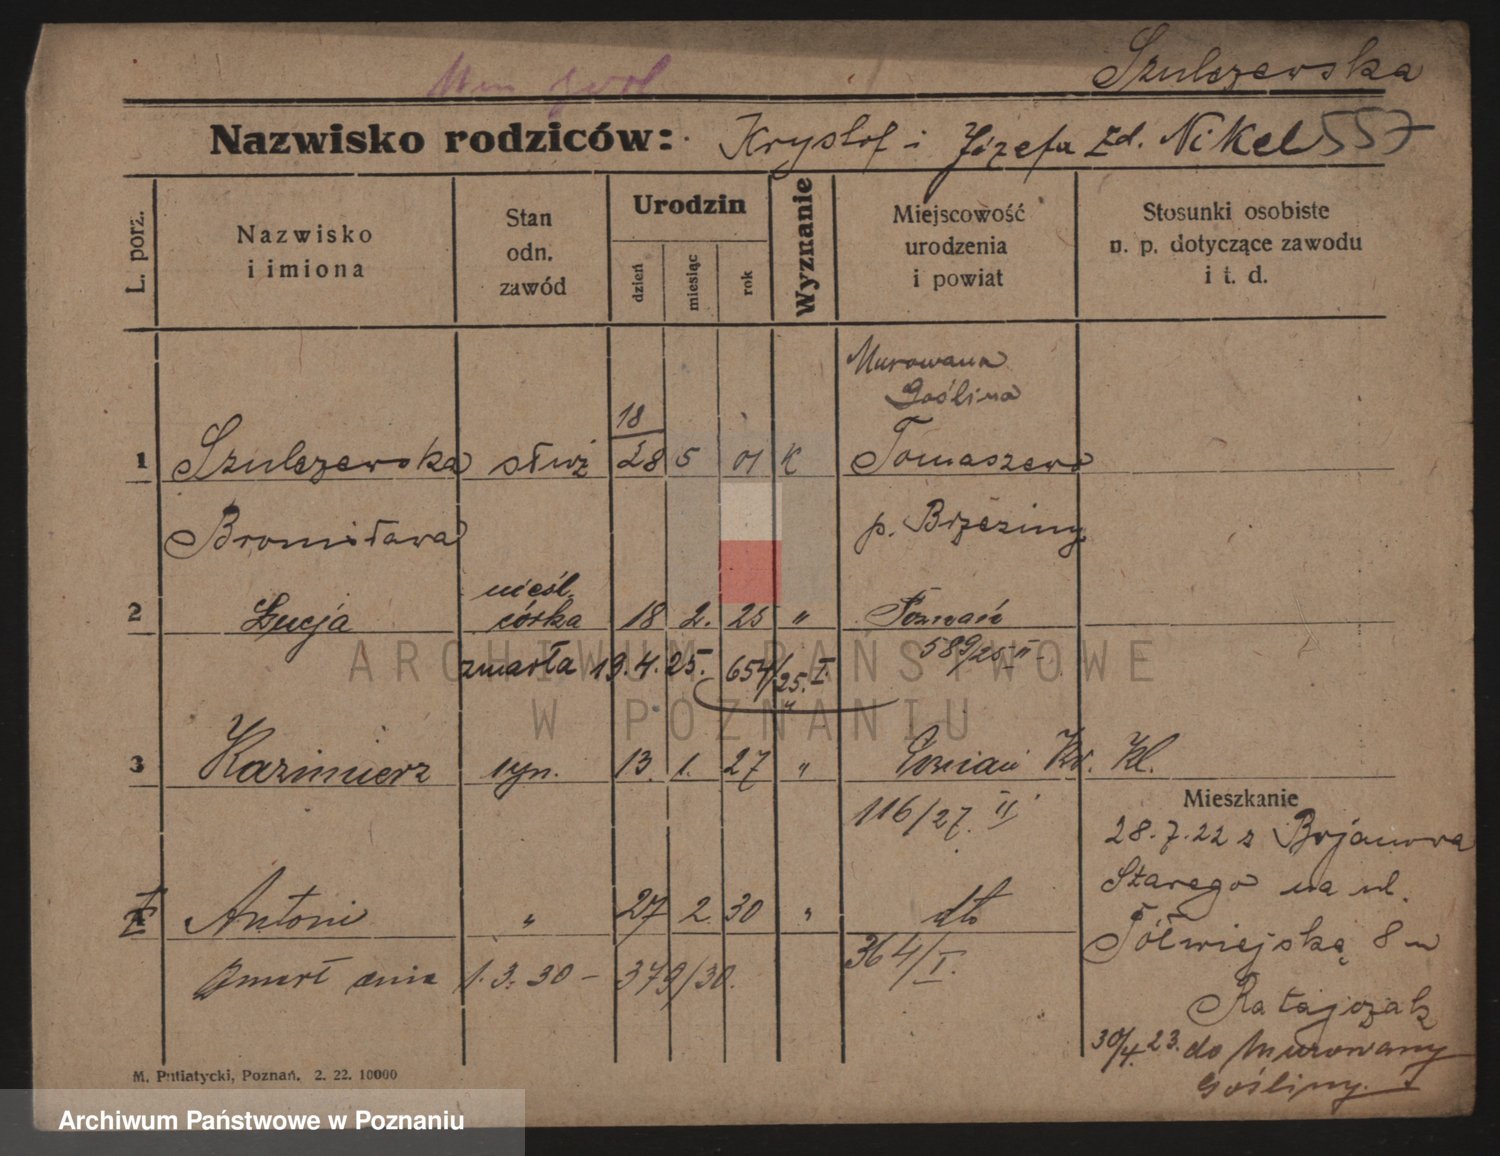 Szulczewska
Nazwisko rodziców: Krysztof i Józefa zd. Nikel 557
L. porz.
Nazwisko
i imiona
Stan
odn.
zawód
Urodzin
dzień
miesiąc
rok
Wyznanie
Miejscowość
urodzenia
i powiat
Stosunki osobiste
n. p. dotyczące zawodu
i t. d.
Murowana
Goślina
18
1 Szulczewska służ 28 5 01 K Tomaszewo
Bronisława p. Brzeziny
nieśl.
2 Łucja córka 18 2. 25 " Poznań
589/25 II
zmarła 19.4.25. 654/25. I.
3 Kazimierz syn. 13. 1. 27 " Poznań Kr. Kl.
116/27. II
Mieszkanie
28.7.22 z Bojanowa
Starego na ul.
Półwiejską 8 w
Ratajczak
30/4.23. do Murowany
Gośliny.
4 Antoni " 27 2 30 " dto
364/I.
Zmarł dnia 1.3.30 - 379/30.
M. Putiatycki, Poznań, 2. 22. 10000
ARCHIWUM PAŃSTWOWE
W POZNANIU
Archiwum Państwowe w Poznaniu